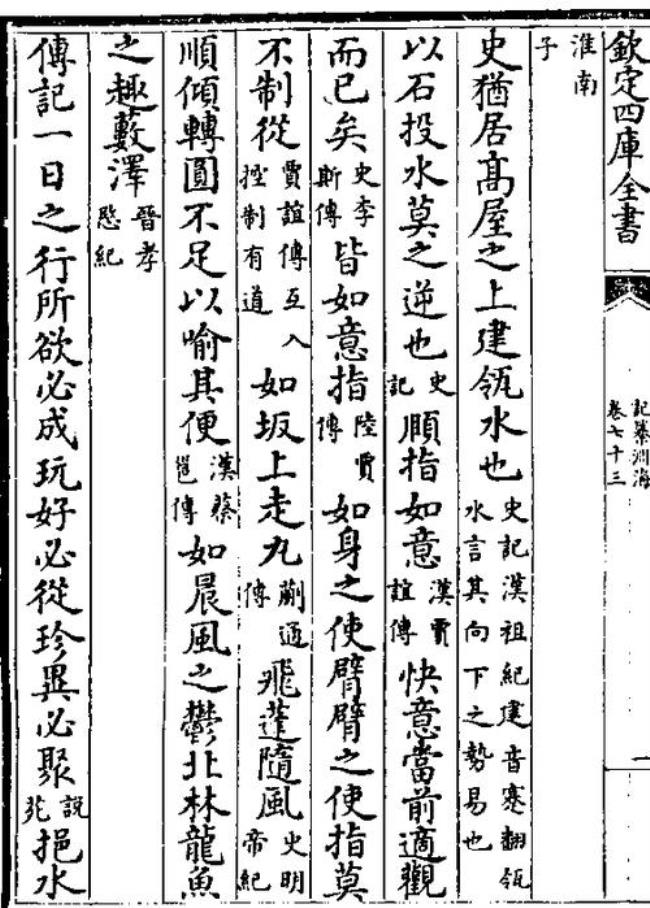 欽定四庫全書
記纂淵海
卷七十三
一
淮南
子
史猶居髙屋之上建瓴水也史記漢祖紀建音蹇翻瓴
水言其向下之勢易也
以石投水莫之逆也史
記順指如意漢賈
誼傳快意當前適觀
而已矣史李
斯傳皆如意指陸賈
傳如身之使臂臂之使指莫
不制從賈誼傳互入
控制有道如坂上走丸蒯通
傳飛蓬隨風史明
帝紀
順傾轉圓不足以喻其便漢蔡
邕傳如晨風之鬱北林龍魚
之趣藪澤晉孝
愍紀
傳記一日之行所欲必成玩好必從珍異必聚說
苑挹水